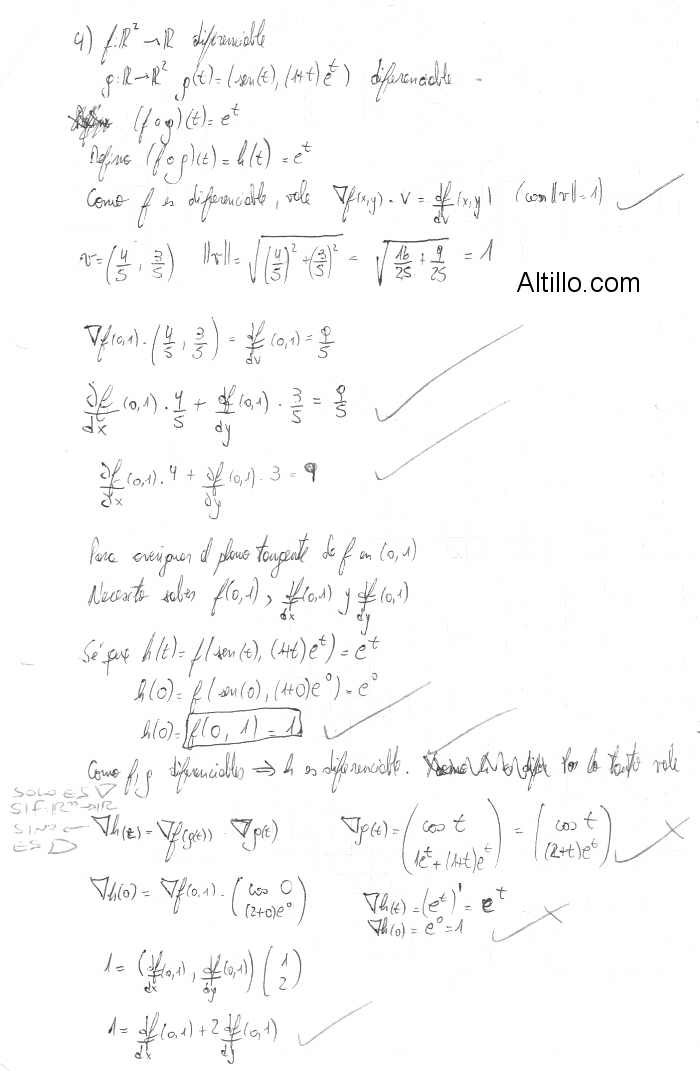 4) f: ℝ² → ℝ diferenciable
g: ℝ → ℝ² g(t) = (sen(t), (1+t)e^t) diferenciable
(f o g)(t) = e^t
Defino (f o g)(t) = h(t) = e^t
Como f es diferenciable, vale ∇f(x,y) . v = df/dv (x,y) (con ||v|| = 1)
v = (4/5, 3/5) ||v|| = √((4/5)² + (3/5)²) = √(16/25 + 9/25) = 1
Altillo.com
∇f(0,1) . (4/5, 3/5) = df/dv (0,1) = 9/5
df/dx (0,1) . 4/5 + df/dy (0,1) . 3/5 = 9/5
df/dx (0,1) . 4 + df/dy (0,1) . 3 = 9
Para averiguar el plano tangente de f en (0,1)
Necesito saber f(0,1), df/dx (0,1) y df/dy (0,1)
Sé que h(t) = f(sen(t), (1+t)e^t) = e^t
h(0) = f(sen(0), (1+0)e^0) = e^0
h(0) = f(0, 1) = 1
Como f, g diferenciables ⇒ h es diferenciable. Por lo tanto vale
SOLO ES ∇
SI F: ℝⁿ → ℝ
SINO
ES D
∇h(t) = ∇f(g(t)) . ∇g(t) ∇g(t) = (cos t, 1e^t + (1+t)e^t) = (cos t, (2+t)e^t)
∇h(0) = ∇f(0,1) . (cos 0, (2+0)e^0) ∇h(t) = (e^t)' = e^t
∇h(0) = e^0 = 1
1 = (df/dx (0,1), df/dy (0,1)) (1, 2)
1 = df/dx (0,1) + 2 df/dy (0,1)